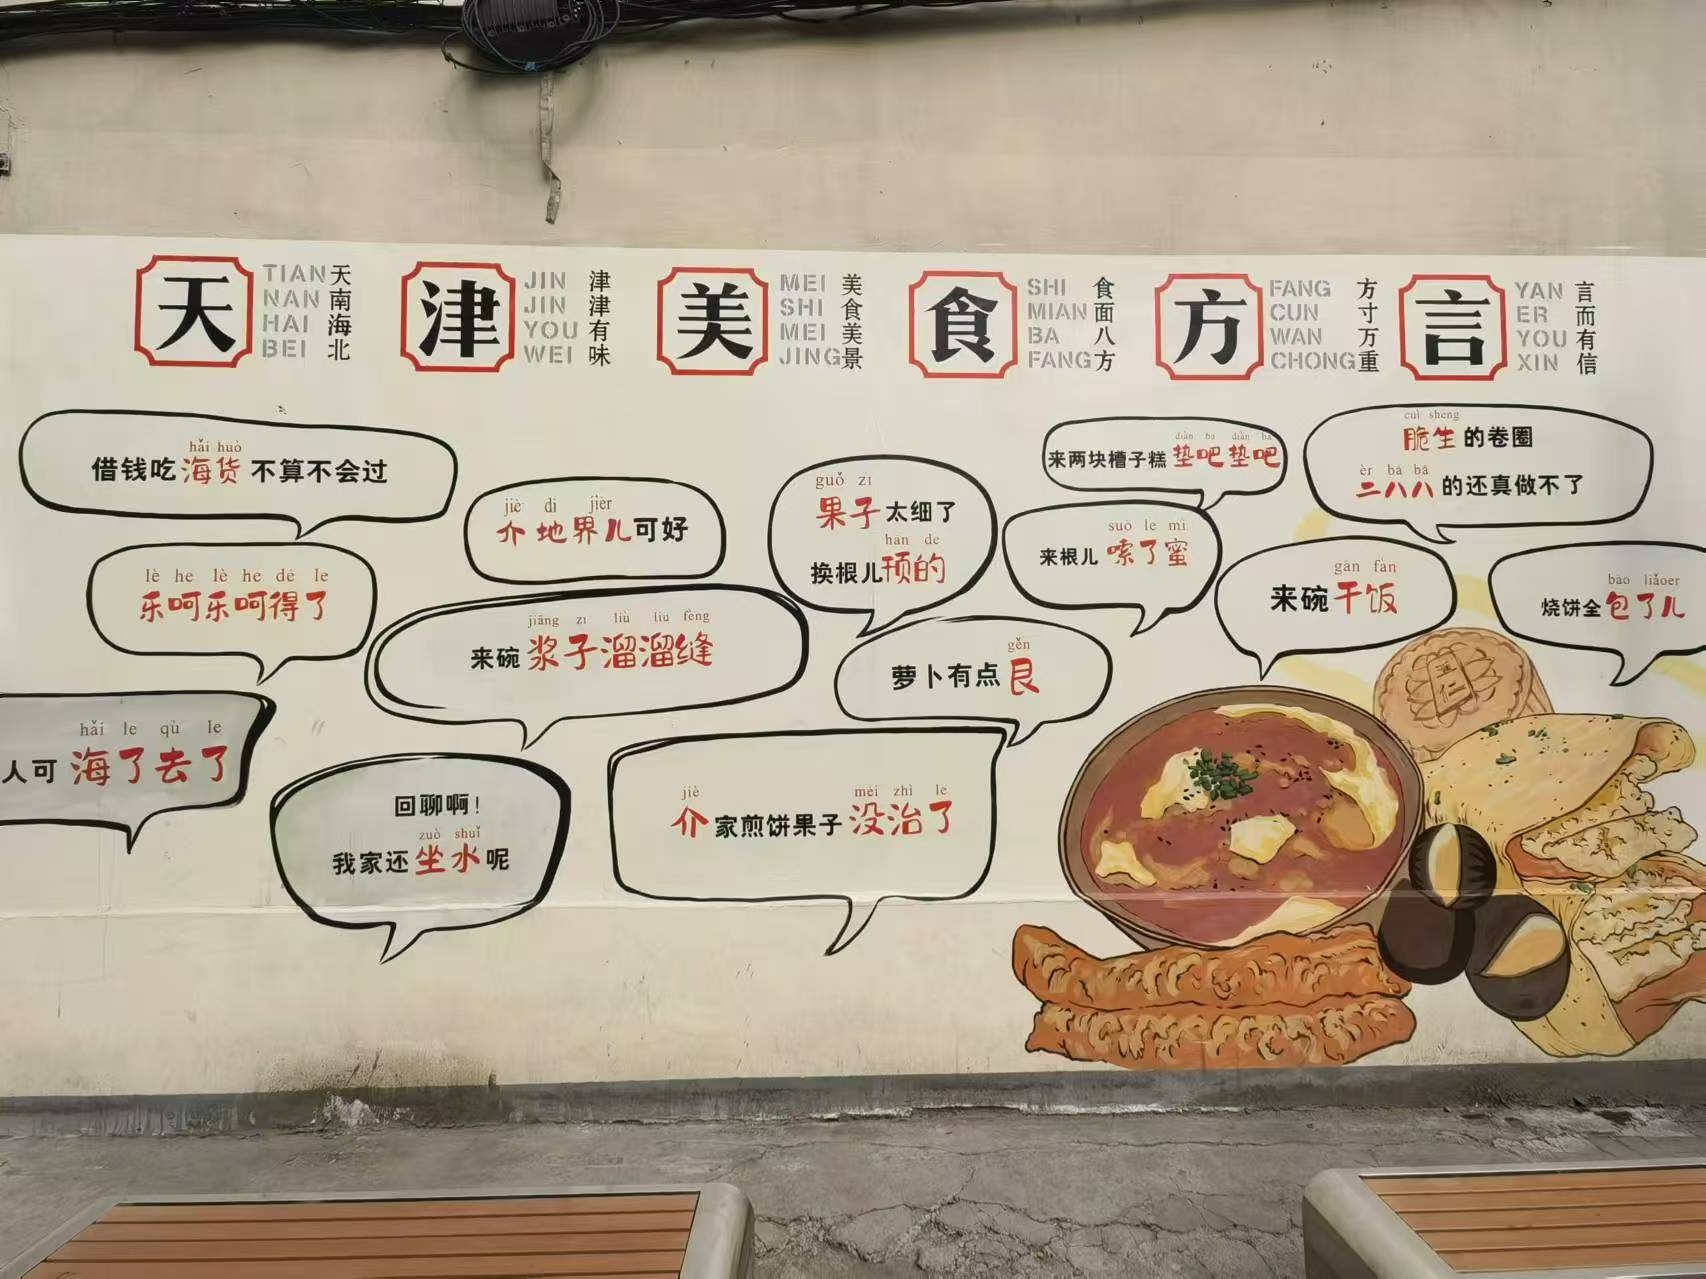 天
TIAN
NAN
HAI
BEI
天南海北
津
JIN
JIN
YOU
WEI
津津有味
美
MEI
SHI
MEI
JING
美食美景
食
SHI
MIAN
BA
FANG
食面八方
方
FANG
CUN
WAN
CHONG
方寸万重
言
YAN
ER
YOU
XIN
言而有信
hǎi huò
借钱吃海货不算不会过
jiè dì jièr
介地界儿可好
guǒ zi
果子太细了
hān de
换根儿顸的
diàn ba diàn ba
来两块槽子糕垫吧垫吧
cuì sheng
脆生的卷圈
èr bā bā
二八八的还真做不了
lè he lè he dé le
乐呵乐呵得了
jiāng zi liù liu fèng
来碗浆子溜溜缝
suō le mì
来根儿嗦了蜜
gān fàn
来碗干饭
bāo liǎoer
烧饼全包了儿
gěn
萝卜有点艮
hǎi le qù le
人可海了去了
回聊啊!
zuò shuǐ
我家还坐水呢
jiè méi zhì le
介家煎饼果子没治了